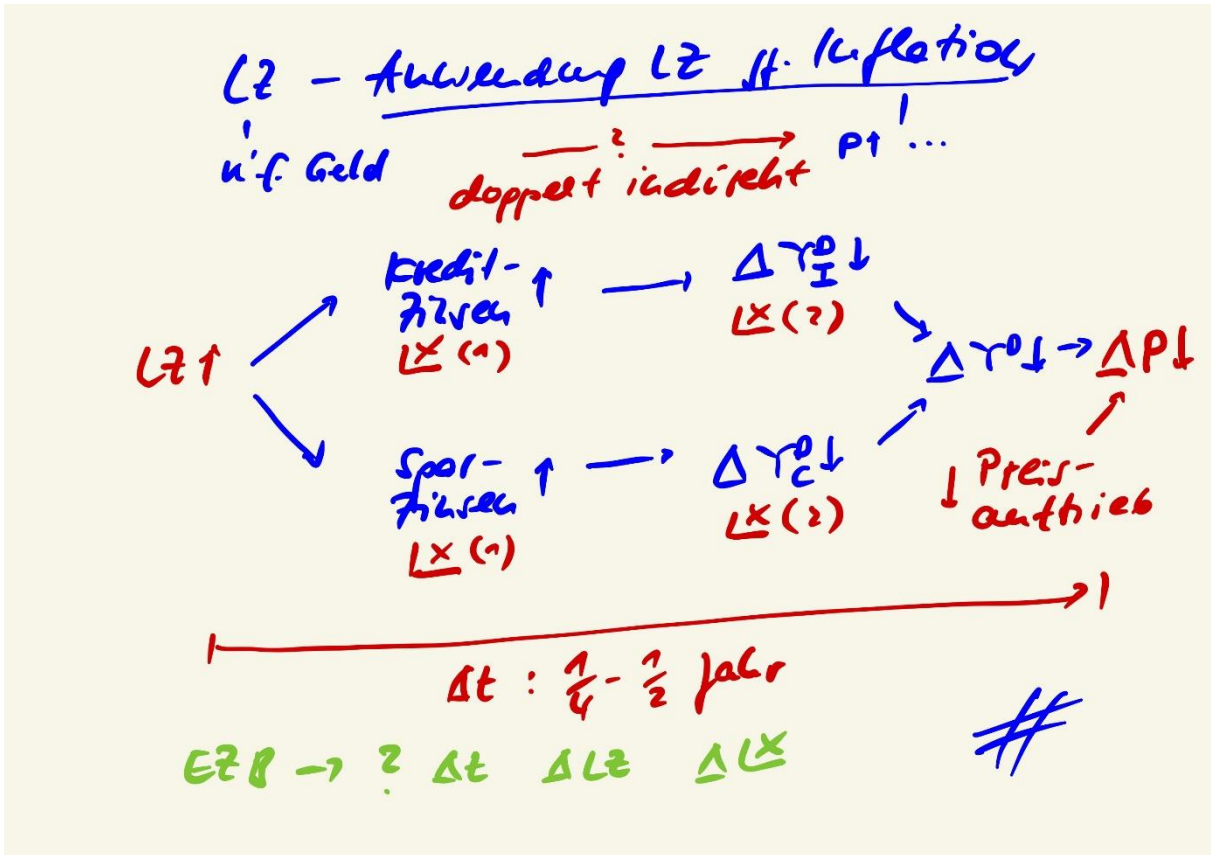 LZ - Anwendung LZ ff. Inflation
n.f. Geld ? → P↑ ...
doppelt indirekt
Kredit-
zinsen ↑ → Δ Y^D_I ↓
(1) (2)
LZ↑ Δ Y^D ↓ → Δ P↓
Spar-
zinsen ↑ → Δ Y^D_C ↓
(1) (2)
↓ Preis-
auftrieb
Δt : 1/4 - 1/2 Jahr
EZB → ? Δt ΔLZ